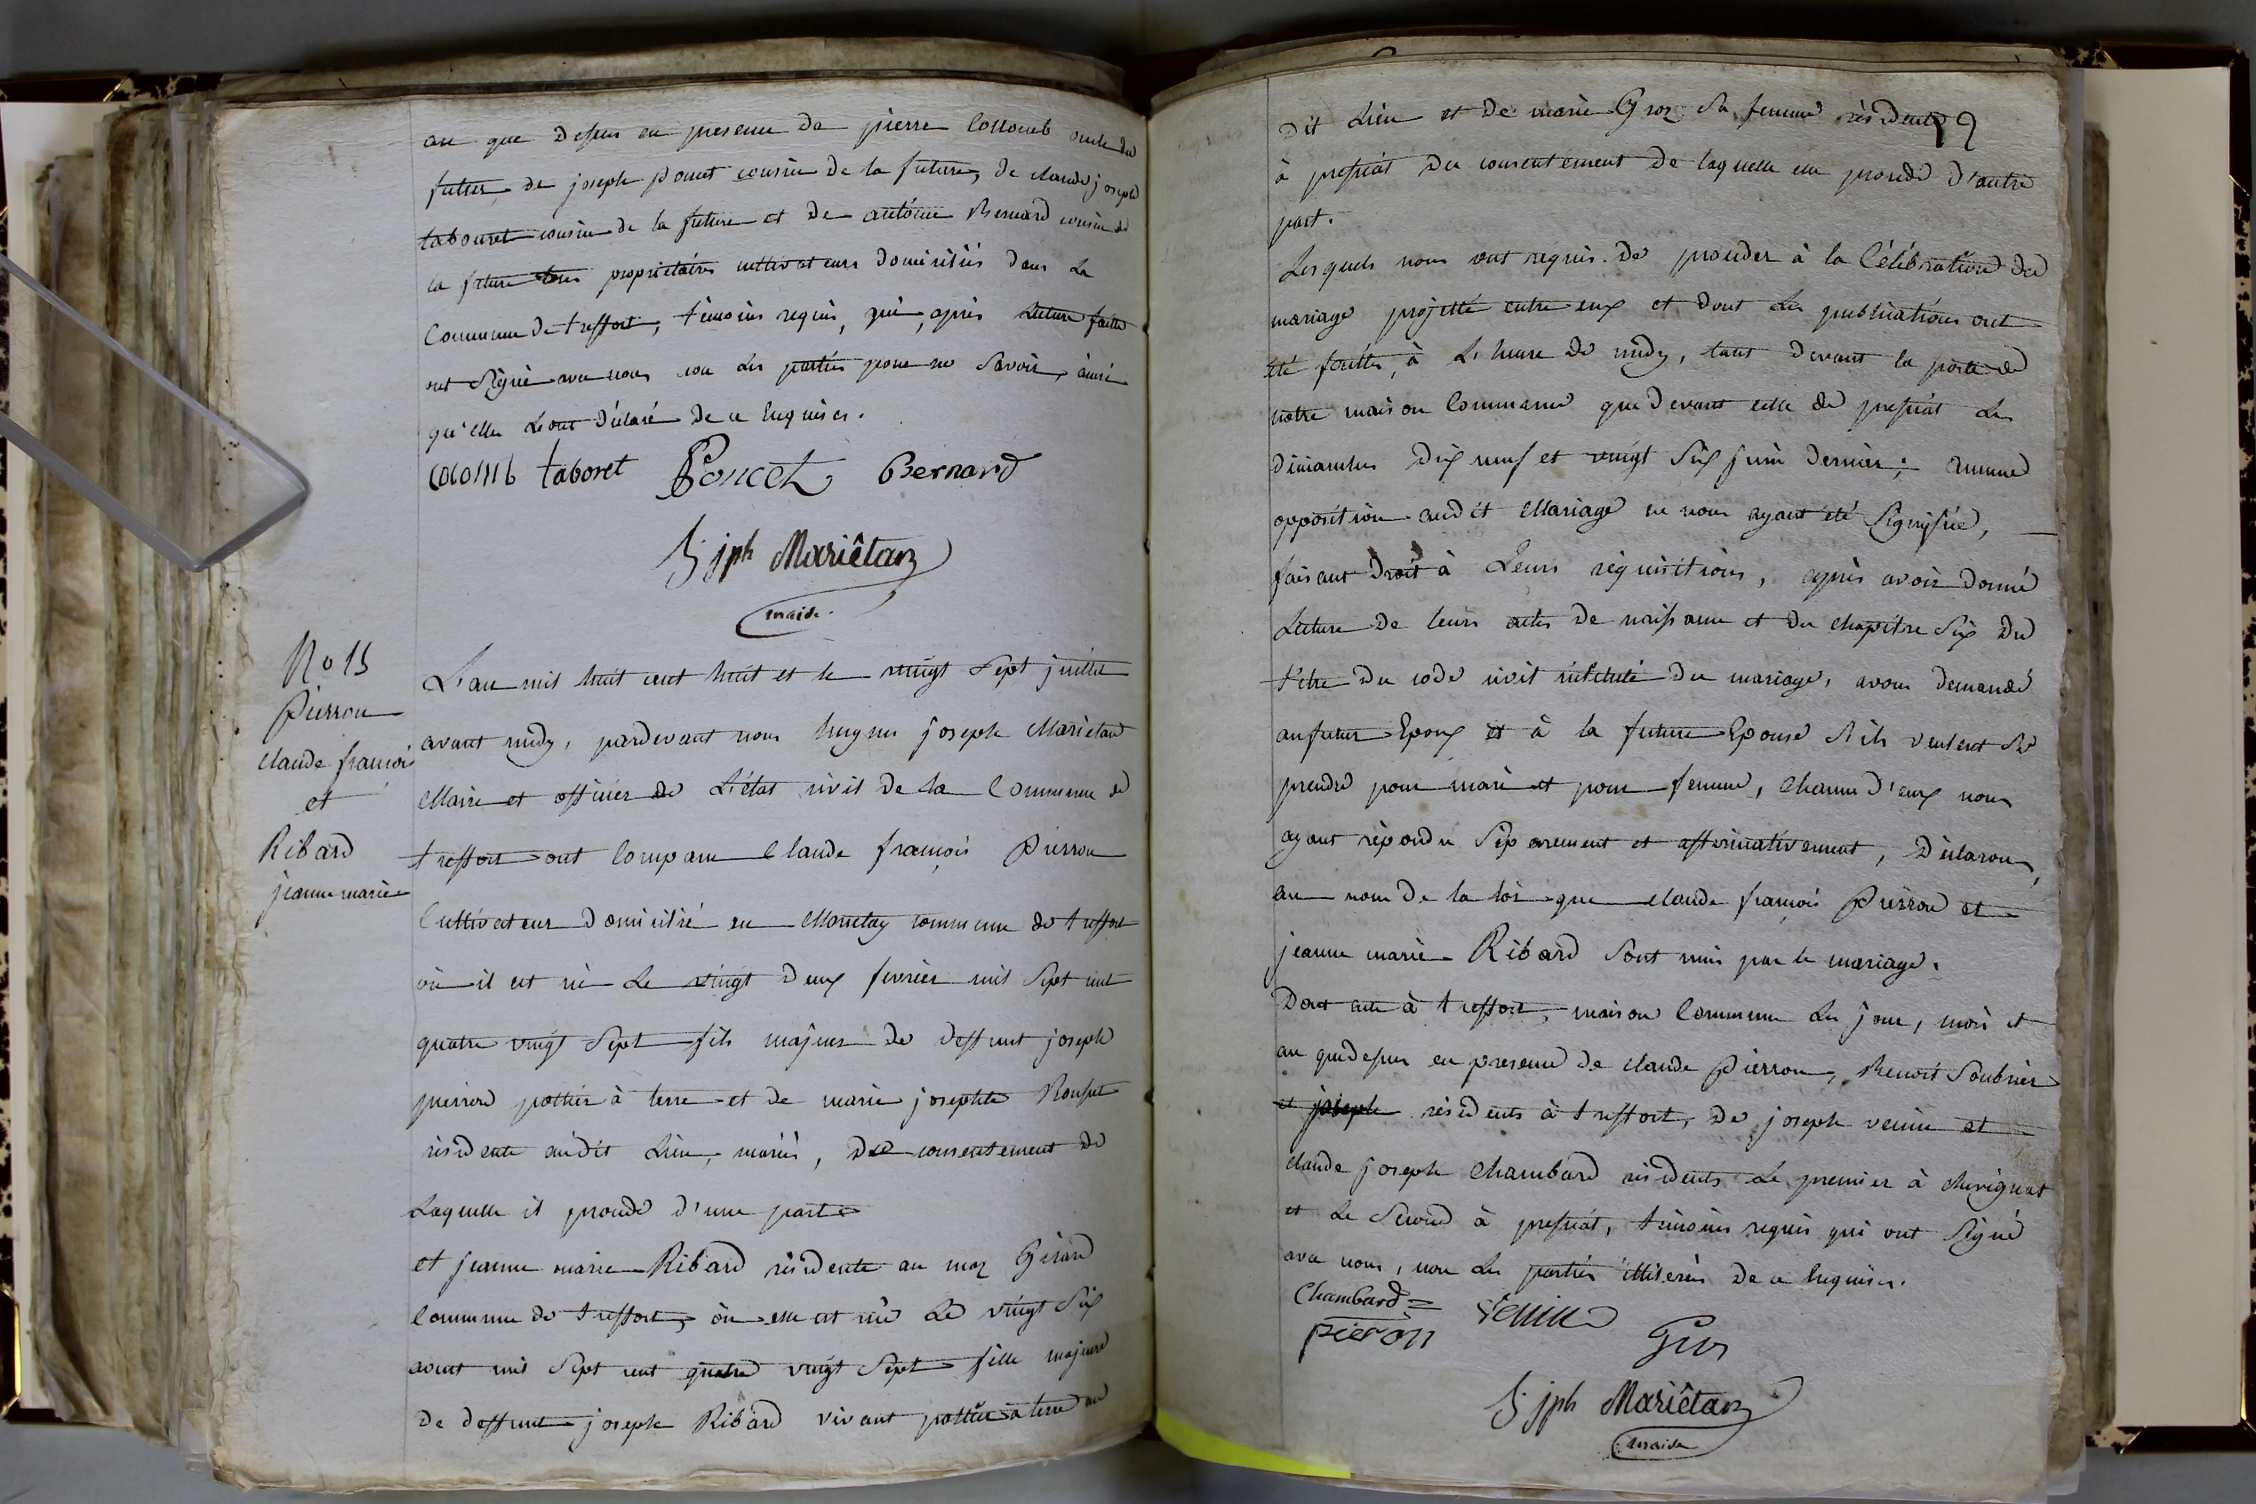 an que dessus en presence de pierre Colloneb oncle du
futur, de joseph poncet cousin de la future, de claude joseph
tabouret cousin de la future et de antoine Bernard cousin de
la future tous proprietaires cultivateurs domiciliés dans La
Commune de treffort, témoins requis, qui, après Lecture faite
ont Signé avec nous non Les parties pour ne Savoir, ainsi
qu'elles L'ont déclaré de ce Enquises.
colomb taboret Poncet Bernard
h. jph Mariêtan
maire.
No 15
Pierron
claude francois
et
Ribard
jeanne marie
L'an mil huit cent huit et le vingt Sept juillet
avant midy, pardevant nous hugues joseph Mariétan
Maire et officier de L'état civil de la Commune de
treffort ont Comparu Claude françois Pierron
Cultivateur domicilié en Montclay commune de treffort
où il est né Le vingt deux fevrier mil Sept cent
quatre vingt Sept fils majeur de deffunt joseph
pierron pottier à terre et de marie josephte
résidente audit Lieu, mariés, du consentement de
Laquelle il procede d'une part
et jeanne marie Ribard résidente au maz Girard
Commune de treffort, où elle est née Le vingt Six
aout mil Sept cent quatre vingt Sept fille majeure
de deffunt joseph Ribard vivant pottier à terre au
dit Lieu et de marie Groz Sa femme résidente
à pressiat du consentement de laquelle elle procede d'autre
part.
Lesquels nous ont requis de proceder à la Célébration du
mariage projetté entre eux et dont Les publications ont
été faittes, à L'heure de midy, tant devant la porte de
notre maison Commune que devant celle de pressiat Les
dimanches dix neuf et vingt Six juin dernier; aucune
opposition audit Mariage ne nous ayant été Signifiée,
faisant droit à Leurs réquisitions, après avoir donné
Lecture de leurs actes de naissance et du chapitre Six du
titre du code civil intitulé du mariage, avons demandé
au futur Epoux et à la future Epouse S'ils veulent Se
prendre pour mari et pour femme, Chacun d'eux nous
ayant répondu Séparement et affirmativement, déclarons
au nom de la loi que claude françois Pierron et
jeanne marie Ribard Sont unis par le mariage.
Dont acte à treffort, maison Commune Les jour, mois et
an que dessus en presence de claude Pierron, Benoit Soubrier
et joseph résidents à treffort, de joseph venin et
claude joseph Chambard résidents Le premier à chevignat
et Le Second à pressiat, témoins requis qui ont Signé
avec nous, non Les parties illiterés de ce Enquises.
Chambard venin
pieron
h. jph Mariêtan
maire